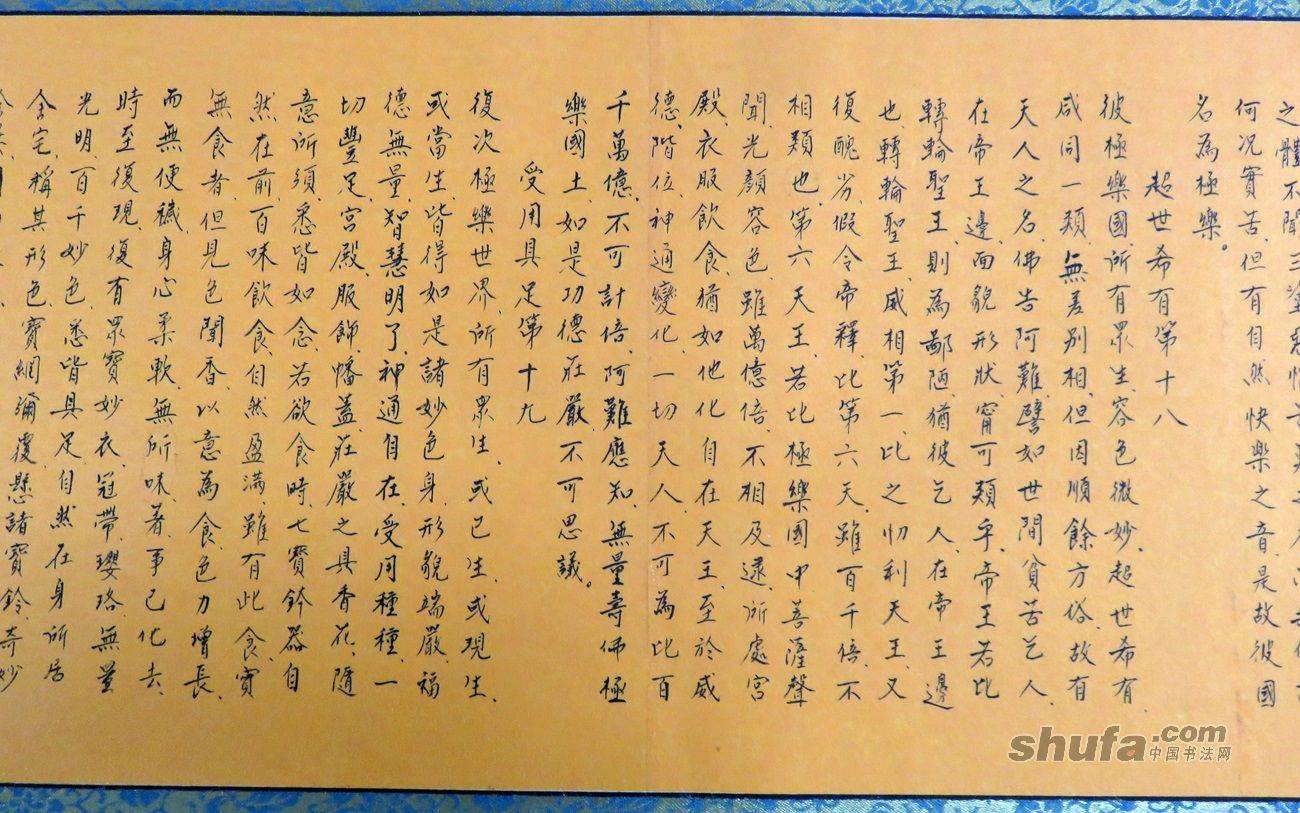 之體不聞三塗惡惱苦
何况實苦、但有自然快樂之音、是故彼國
名為極樂。
超世希有第十八
彼極樂國、所有眾生、容色微妙、超世希有
咸同一類、無差別相、但因順餘方俗、故有
天人之名、佛告阿難、譬如世間貧苦乞人、
在帝王邊、面貌形狀、甯可類乎、帝王若比
轉輪聖王、則為鄙陋、猶彼乞人、在帝王邊
也、轉輪聖王、威相第一、比之忉利天王、又
復醜劣、假令帝釋、比第六天、雖百千倍、不
相類也、第六天王、若比極樂國中、菩薩聲
聞、光顏容色、雖萬億倍、不相及逮、所處宮
殿、衣服飲食、猶如他化自在天王、至於威
德、階位、神通變化、一切天人、不可為比、百
千萬億、不可計倍、阿難應知、無量壽佛極
樂國土、如是功德莊嚴、不可思議。
受用具足第十九
復次極樂世界、所有眾生、或已生、或現生、
或當生、皆得如是諸妙色身、形貌端嚴、福
德無量、智慧明了、神通自在、受用種種、一
切豐足、宮殿、服飾、幡蓋、莊嚴之具、香花、隨
意所須、悉皆如念、若欲食時、七寶鉢器、自
然在前、百味飲食、自然盈滿、雖有此食、實
無食者、但見色聞香、以意為食、色力增長、
而無便穢、身心柔軟、無所味著、事已化去、
時至復現、復有眾寶妙衣、冠帶、瓔珞、無量
光明、百千妙色、悉皆具足、自然在身、所居
舍宅、稱其形色、寶網彌覆、懸諸寶鈴、奇妙
shufa.com
中国书法网